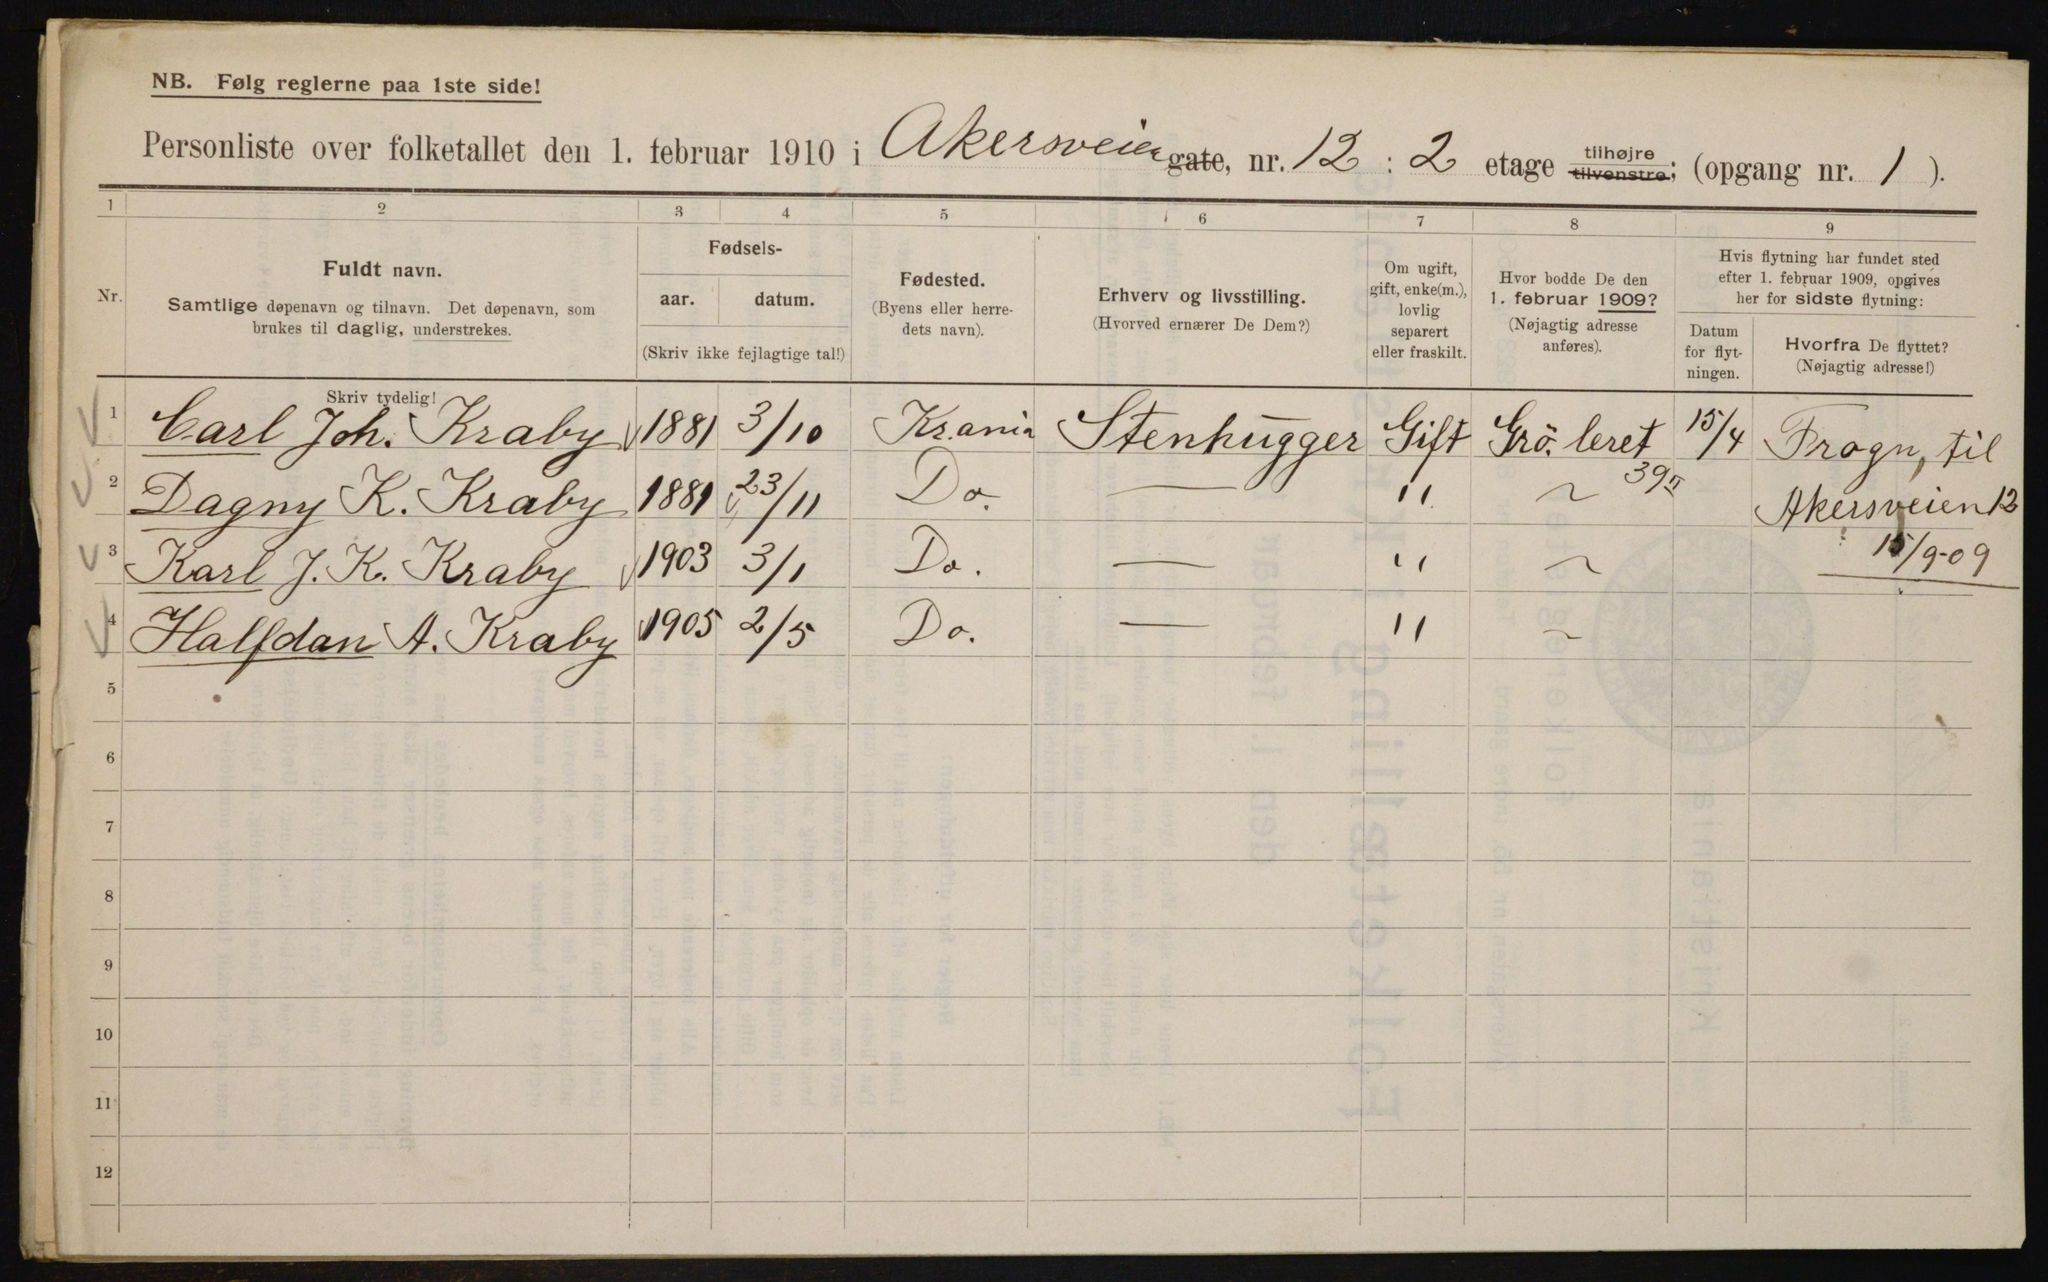 NB. Følg reglerne paa 1ste side!
Personliste over folketallet den 1. februar 1910 i Akersveien gate, nr. 12 : 2 etage tilhøjre tilvenstre; (opgang nr. 1 ).
1 2 3 4 5 6 7 8 9
Nr.
Fuldt navn.
Samtlige døpenavn og tilnavn. Det døpenavn, som
brukes til daglig, understrekes.
Skriv tydelig!
Fødsels-
aar. datum.
(Skriv ikke fejlagtige tal!)
Fødested.
(Byens eller herre-
dets navn).
Erhverv og livsstilling.
(Hvorved ernærer De Dem?)
Om ugift,
gift, enke(m.),
lovlig
separert
eller fraskilt.
Hvor bodde De den
1. februar 1909?
(Nøjagtig adresse
anføres).
Hvis flytning har fundet sted
efter 1. februar 1909, opgives
her for sidste flytning:
Datum
for flyt-
ningen.
Hvorfra De flyttet?
(Nøjagtig adresse!)
1 Carl Joh. Kraby 1881 3/10 Kr.ania Stenhugger Gift Grö.leret 39II 15/4 Frogn, til
2 Dagny K. Kraby 1881 23/11 Do. — " ~ Akersveien 12
3 Karl J. K. Kraby 1903 3/1 Do. — " ~ 15/9-09
4 Halfdan A. Kraby 1905 2/5 Do. — " ~
5
6
7
8
9
10
11
12